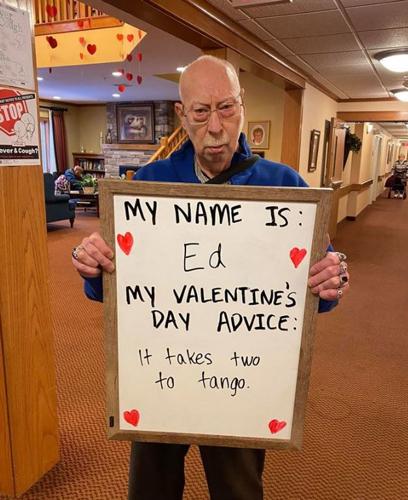 STOP
ever & Cough?
MY NAME IS:
Ed
MY VALENTINE'S
DAY ADVICE:
It takes two
to tango.